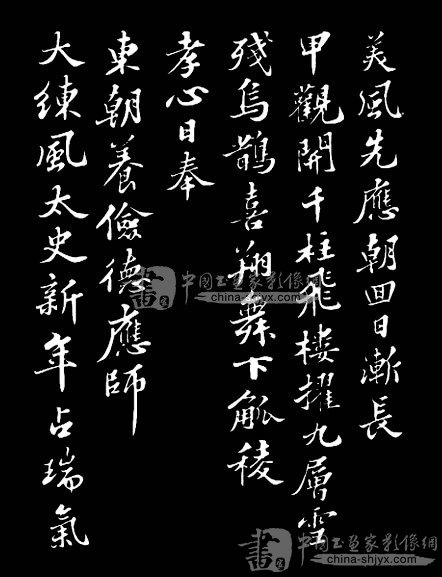 美風先應朝回日漸長
甲觀開千柱飛樓擢九層雪
殘烏鵲喜翔舞下觚稜
孝心日奉
東朝養儉德應師
大練風太史新年占瑞氣
china-shjyx.com
china-shjyx.com